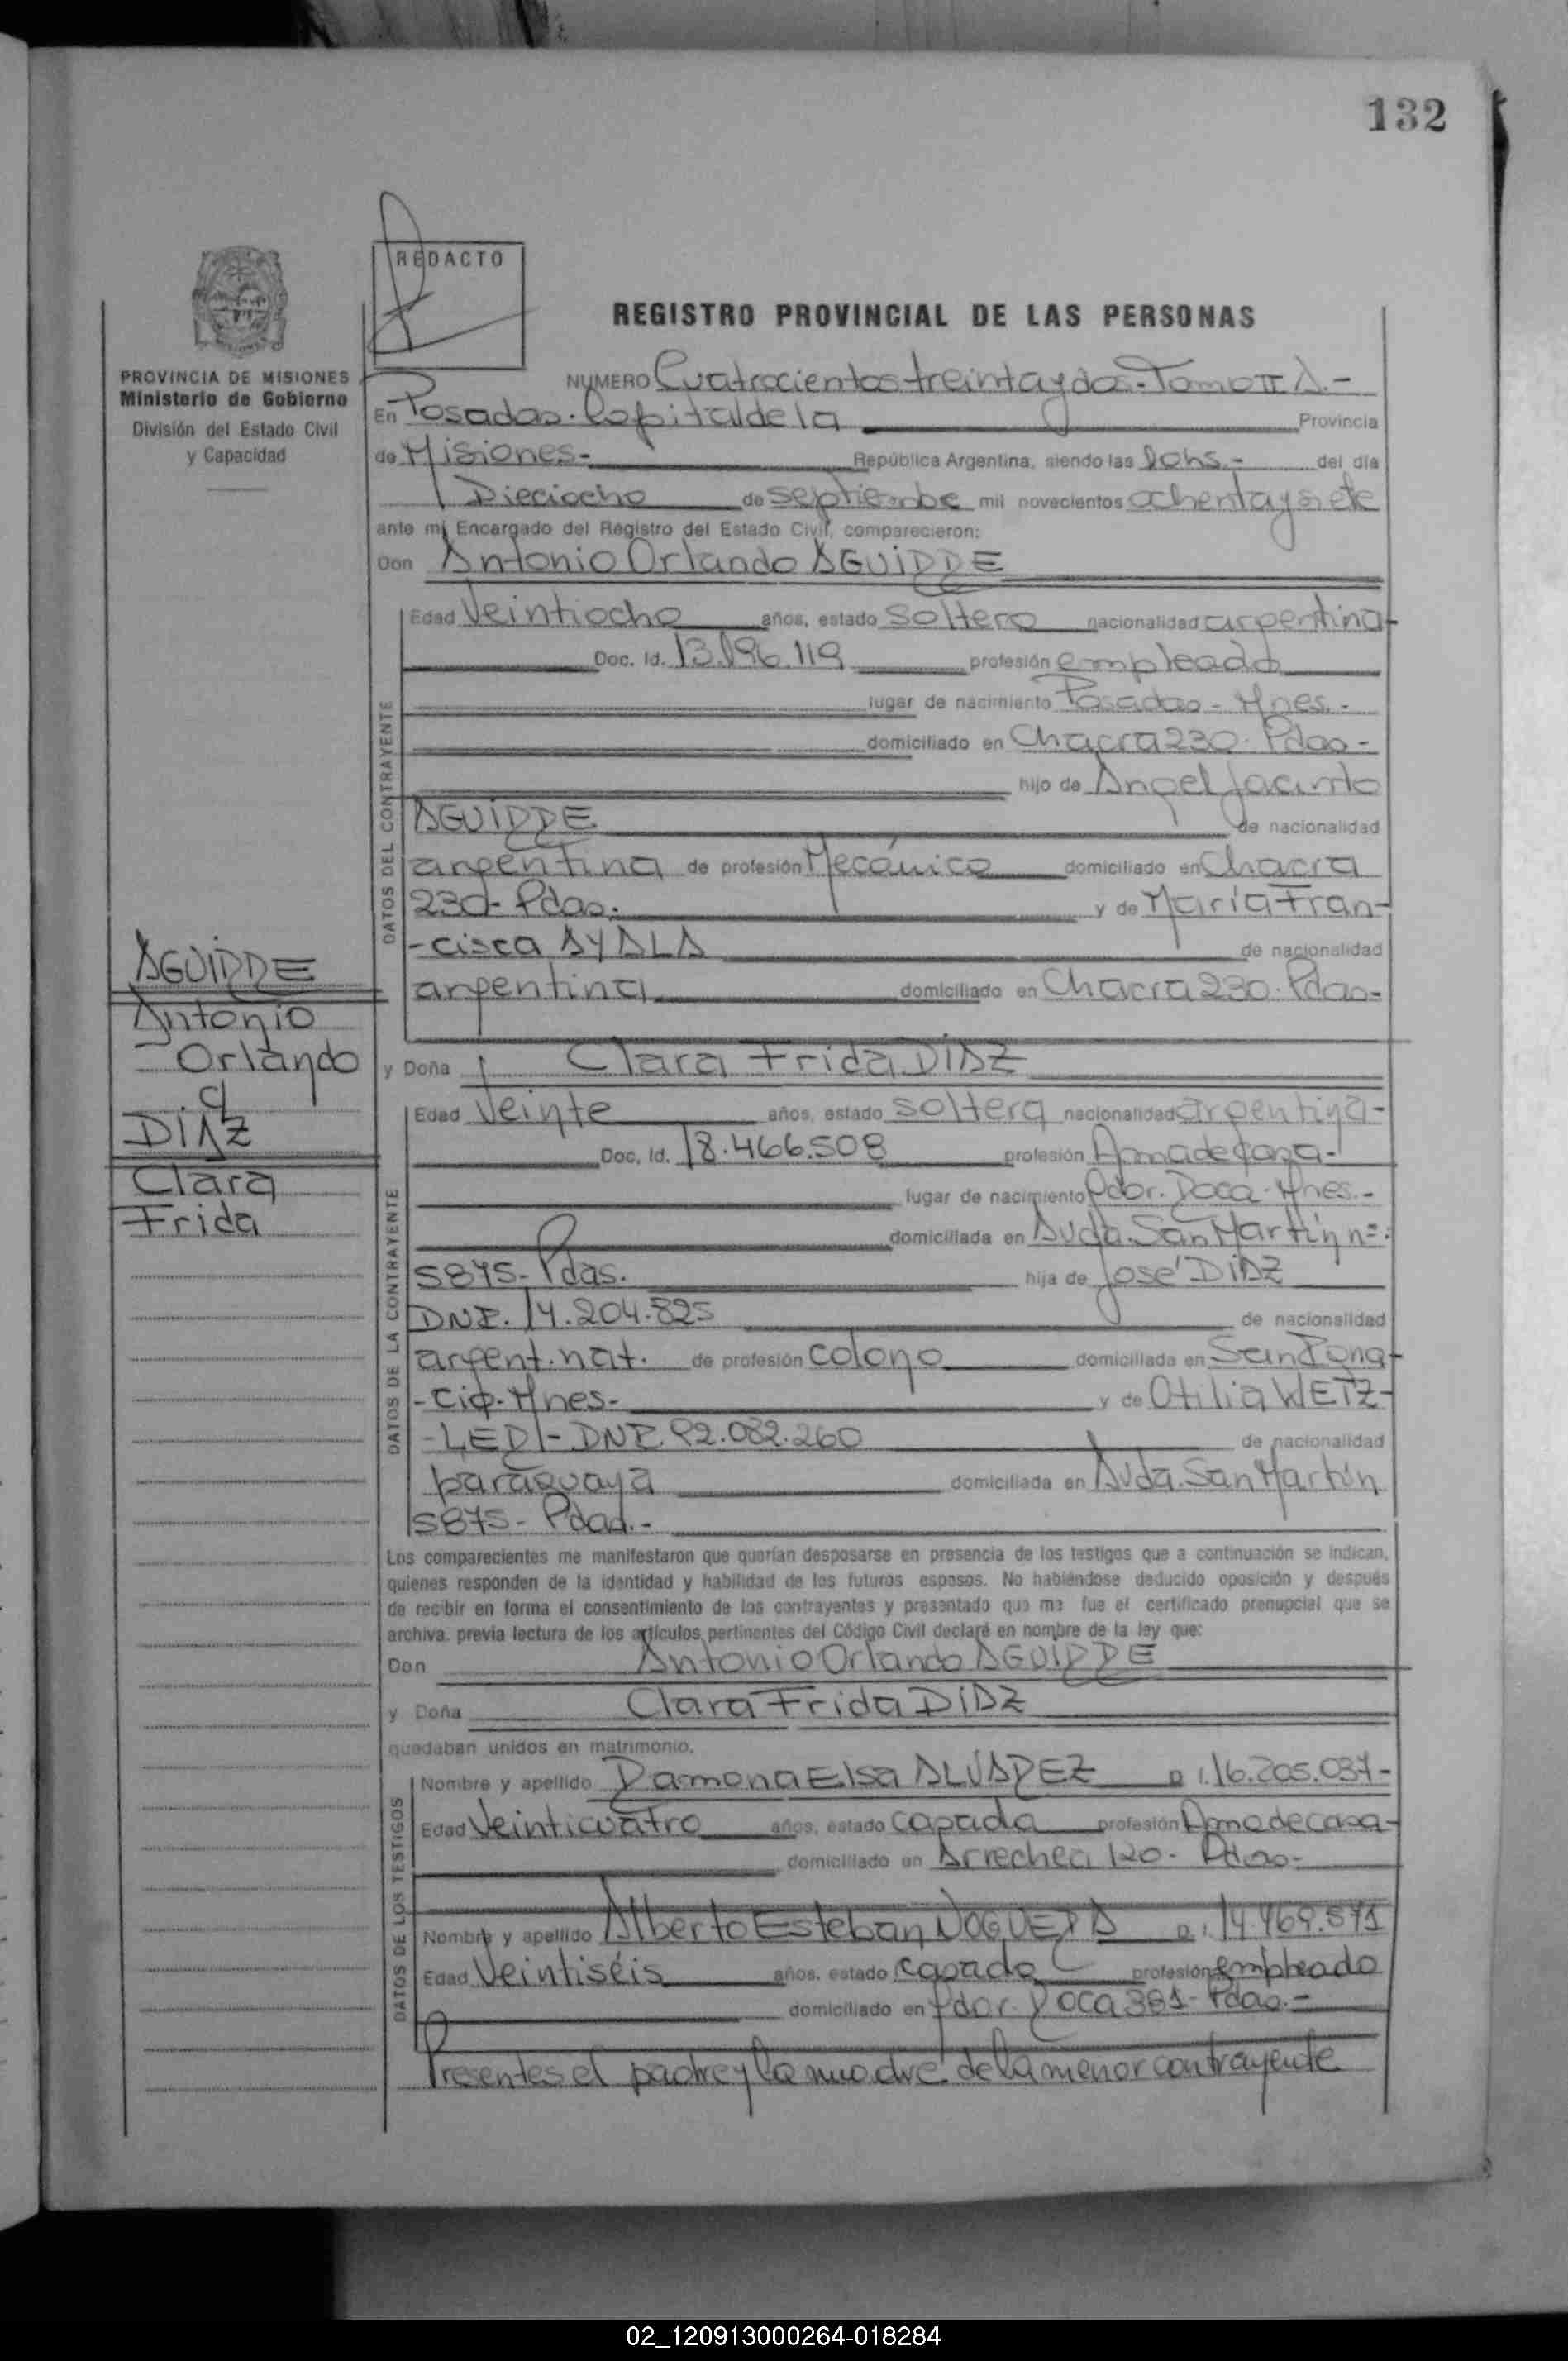 132
REDACTO
REGISTRO PROVINCIAL DE LAS PERSONAS
PROVINCIA DE MISIONES
Ministerio de Gobierno
División del Estado Civil
y Capacidad
NUMERO Cuatrocientos treinta y dos - Tomo II A.-
En Posadas. Capital de la Provincia
de Misiones.- República Argentina, siendo las 10hs.- del día
Dieciocho de septiembe mil novecientos ochenta y siete
ante mi Encargado del Registro del Estado Civil, comparecieron:
Don Antonio Orlando AGUIRRE
DATOS DEL CONTRAYENTE
Edad Veintiocho años, estado soltero nacionalidad argentina-
Doc. Id. 13.196.119 profesión empleado
lugar de nacimiento Posadas - Mnes.-
domiciliado en Chacra 230. Pdas-
hijo de Angel Jacinto
AGUIRRE de nacionalidad
argentina de profesión Mecánico domiciliado en Chacra
230- Pdas. y de María Fran-
-cisca AYALA de nacionalidad
argentina domiciliado en Chacra 230. Pdas-
y Doña Clara Frida DIAZ
AGUIRRE
Antonio
Orlando
c/
DIAZ
Clara
Frida
DATOS DE LA CONTRAYENTE
Edad Veinte años, estado soltera nacionalidad argentina-
Doc. Id. 18.466.508 profesión Ama de casa-
lugar de nacimiento Pdor. Roca - Mnes.-
domiciliada en Avda. San Martín nº:
5875- Pdas. hija de José DIAZ
DNI. 14.204.825 de nacionalidad
argent. nat. de profesión colono domiciliada en San Igna-
-cio. Mnes- y de Otilia WETZ-
-LED - DNI. 92.082.260 de nacionalidad
paraguaya domiciliada en Avda. San Martín
5875- Pdas.-
Los comparecientes me manifestaron que querían desposarse en presencia de los testigos que a continuación se indican,
quienes responden de la identidad y habilidad de los futuros esposos. No habiéndose deducido oposición y después
de recibir en forma el consentimiento de los contrayentes y presentado que me fue el certificado prenupcial que se
archiva, previa lectura de los artículos pertinentes del Código Civil declaré en nombre de la ley que:
Don Antonio Orlando AGUIRRE
y Doña Clara Frida DIAZ
quedaban unidos en matrimonio.
DATOS DE LOS TESTIGOS
Nombre y apellido Ramona Elsa ALVAREZ 16.205.037-
Edad Veinticuatro años, estado casada profesión Ama de casa-
domiciliado en Arrechea 120- Pdas-
Nombre y apellido Alberto Esteban NOGUERA 14.469.571
Edad Veintiséis años, estado casado profesión empleado
domiciliado en Pdor. Roca 381- Pdas.-
Presentes el padre y la madre de la menor contrayente
02_120913000264-018284